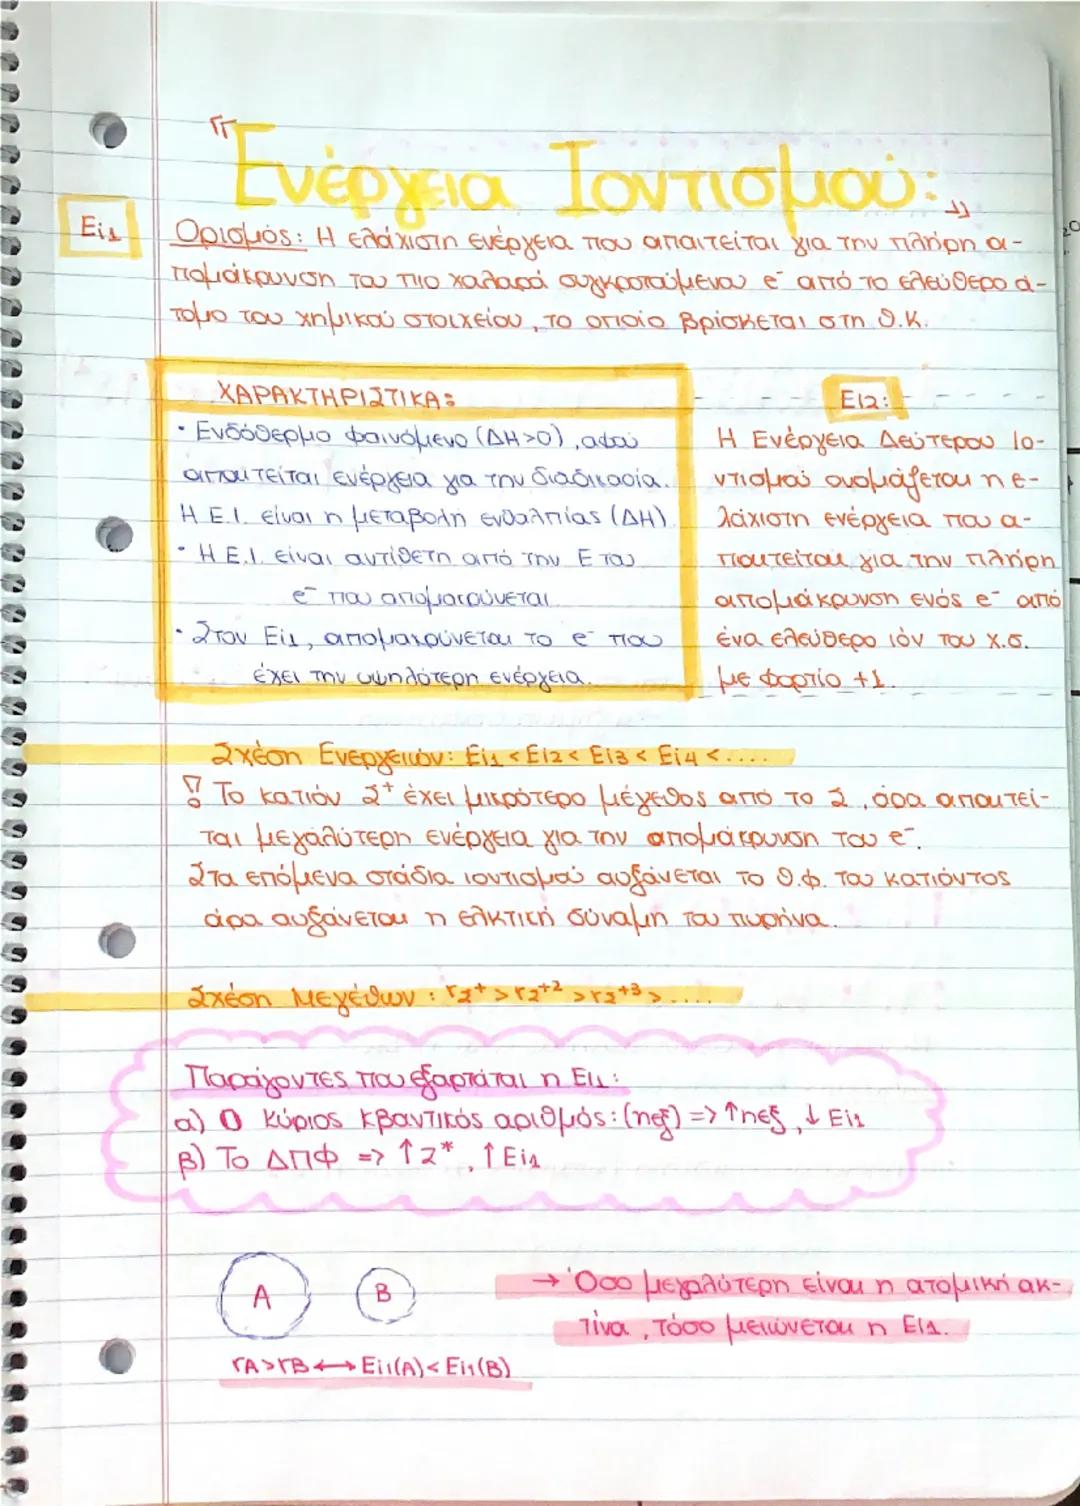 "Ενέργεια Ιοντισμού:"
Ei1
Ορισμός: Η ελάχιστη ενέργεια που απαιτείται για την πλήρη α-
πομάκρυνση του πιο χαλαρά συγκρατούμενου e⁻ από το ελεύθερο ά-
τομο του χημικού στοιχείου, το οποίο βρίσκεται στη Θ.Κ.
ΧΑΡΑΚΤΗΡΙΣΤΙΚΑ:
• Ενδόθερμο φαινόμενο (ΔΗ>0), αφού
απαιτείται ενέργεια για την διαδικασία.
Η Ε.Ι. είναι η μεταβολή ενθαλπίας (ΔΗ).
• Η Ε.Ι. είναι αντίθετη από την Ε του
e⁻ που απομακρύνεται.
• Στον Ei1, απομακρύνεται το e⁻ που
έχει την υψηλότερη ενέργεια.
Ei2:
Η Ενέργεια Δεύτερου Ιο-
ντισμού ονομάζεται η ε-
λάχιστη ενέργεια που α-
παιτείται για την πλήρη
απομάκρυνση ενός e⁻ από
ένα ελεύθερο ιόν του χ.σ.
με φορτίο +1.
Σχέση Ενεργειών: Ei1 < Ei2 < Ei3 < Ei4 < ....
! Το κατιόν Σ⁺ έχει μικρότερο μέγεθος από το Σ, άρα απαιτεί-
ται μεγαλύτερη ενέργεια για την απομάκρυνση του e⁻.
Στα επόμενα στάδια ιοντισμού αυξάνεται το Θ.φ. του κατιόντος
άρα αυξάνεται η ελκτική δύναμη του πυρήνα.
Σχέση Μεγέθων: rΣ⁺ > rΣ⁺² > rΣ⁺³ > ....
Παράγοντες που εξαρτάται η Ei1:
α) Ο κύριος κβαντικός αριθμός: (nεξ) => ↑nεξ, ↓ Ei1
β) Το ΔΠΦ => ↑Z*, ↑Ei1
A
B
→ Όσο μεγαλύτερη είναι η ατομική ακ-
τίνα, τόσο μειώνεται η Ei1.
rA>rB ↔ Ei1(A) < Ei1(B)